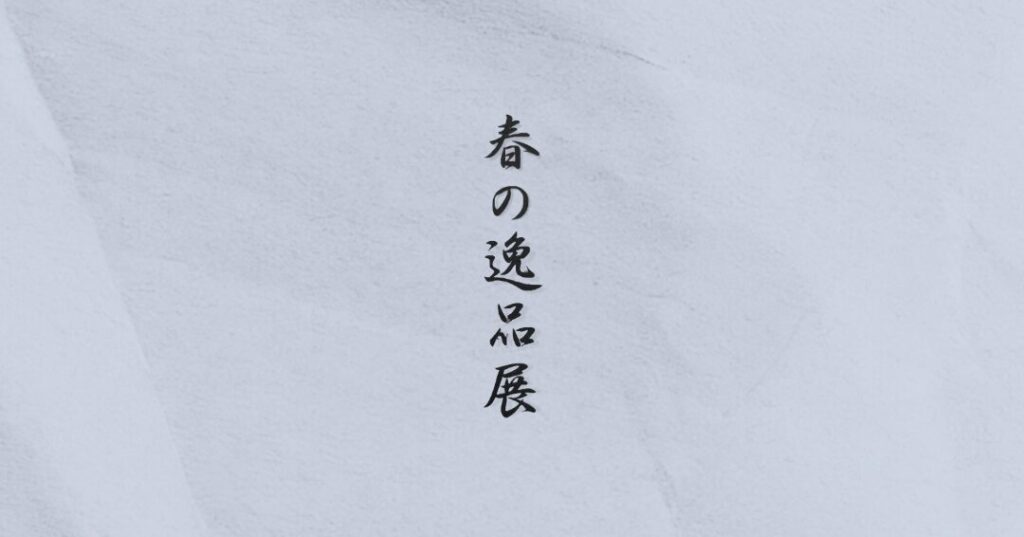 春の逸品展